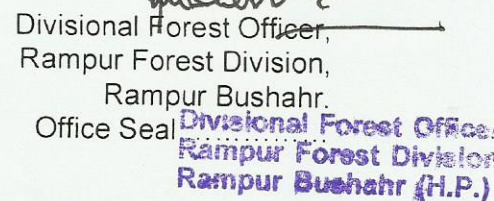 Divisional Forest Officer,
Rampur Forest Division,
Rampur Bushahr.
Office Seal
Divisional Forest Office
Rampur Forest Division
Rampur Bushahr (H.P.)